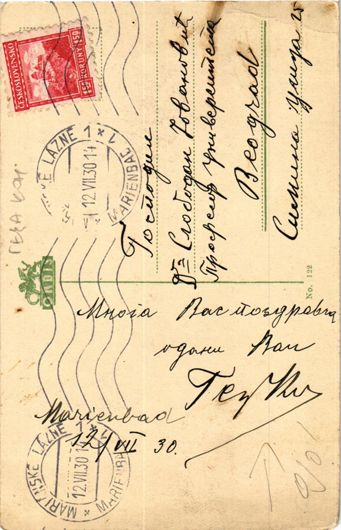 ČESKOSLOVENSKO
MARIÁNSKÉ LÁZNĚ 1 * 1
12.VII.30.1
MARIENBAD
Господин
Др Слободан Јовановић
Професор универзитета
Beograd
улица 15
No. 122
Многа Вас поздравља
одани Вам
Marienbad
12/VII 30.
MARIÁNSKÉ LÁZNĚ 1 * 1
12.VII.30.1
MARIENBAD